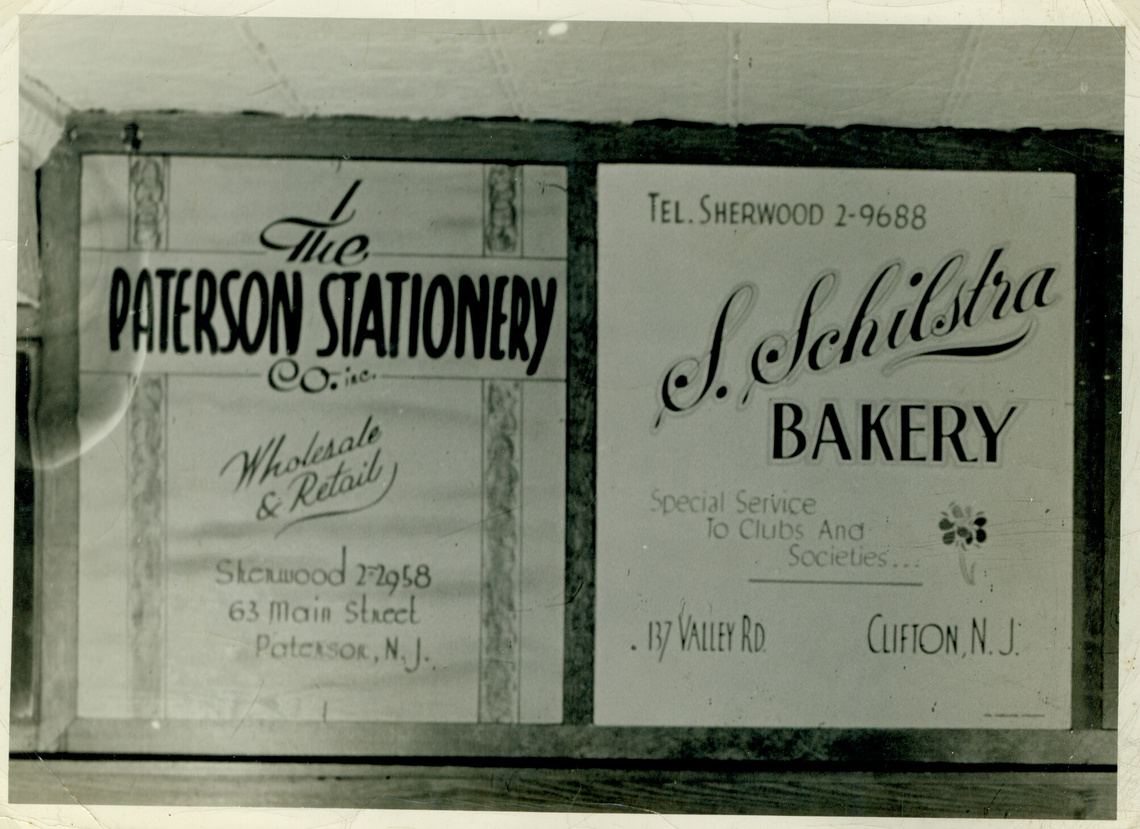 The
PATERSON STATIONERY
Co. inc.
Wholesale
& Retail
Sherwood 2-2958
63 Main Street
Paterson, N.J.
TEL. SHERWOOD 2-9688
S. Schilstra
BAKERY
Special Service
To Clubs And
Societies...
137 VALLEY RD.
CLIFTON, N.J.